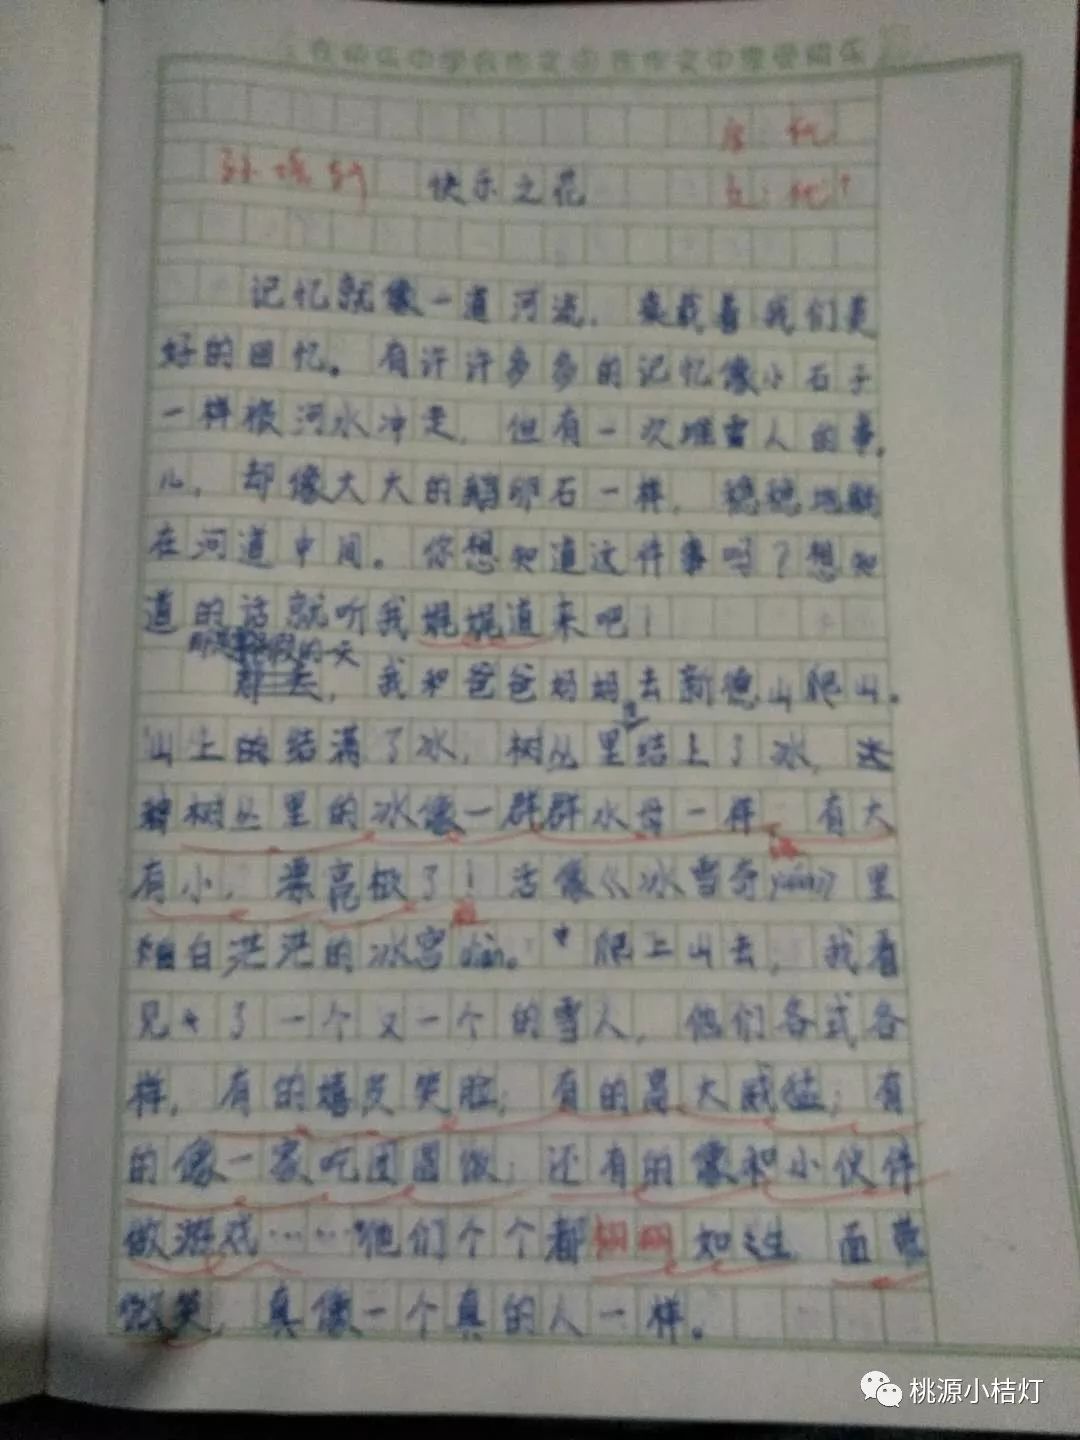 快乐之花
记忆就像一道河流，承载着我们美
好的回忆。有许许多多的记忆像小石子
一样被河水冲走，但有一次堆雪人的事
儿，却像大大的鹅卵石一样，稳稳地躺
在河道中间。你想知道这件事吗？想知
道的话就听我娓娓道来吧！
的一天
我和爸爸妈妈去新德山爬山。
山上的结满了冰，树丛里结上了冰，这
种树丛里的冰像一群群水母一样 有大
有小，漂亮极了！活像《冰雪奇yuán》里
白茫茫的冰宫diàn。爬上山去，我看
见了一个又一个的雪人，他们各式各
样，有的嬉皮笑脸；有的高大威猛；有
的像一家吃团圆饭；还有的像和小伙伴
做游戏……他们个个都栩栩如生 面带
微笑，真像一个真的人一样。
桃源小桔灯